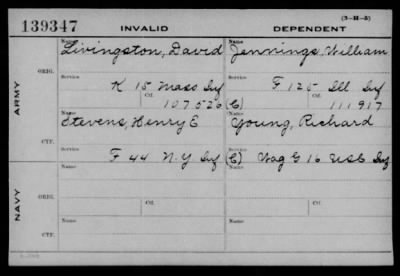 (3-H-5)
139347 INVALID DEPENDENT
Name Name
Livingston, David Jennings, William
ORIG. Service Service
K 15 Mass Inf F 125 Ill Inf
ARMY Ctf. Ctf.
107026 (C) 111917
Name Name
Stevens, Henry E Young, Richard
CTF. Service Service
F 44 N.Y Inf (C) Wag G 16 USC Inf
Name Name
ORIG. Service Ctf. Service Ctf.
NAVY
Name Name
CTF. Service Service